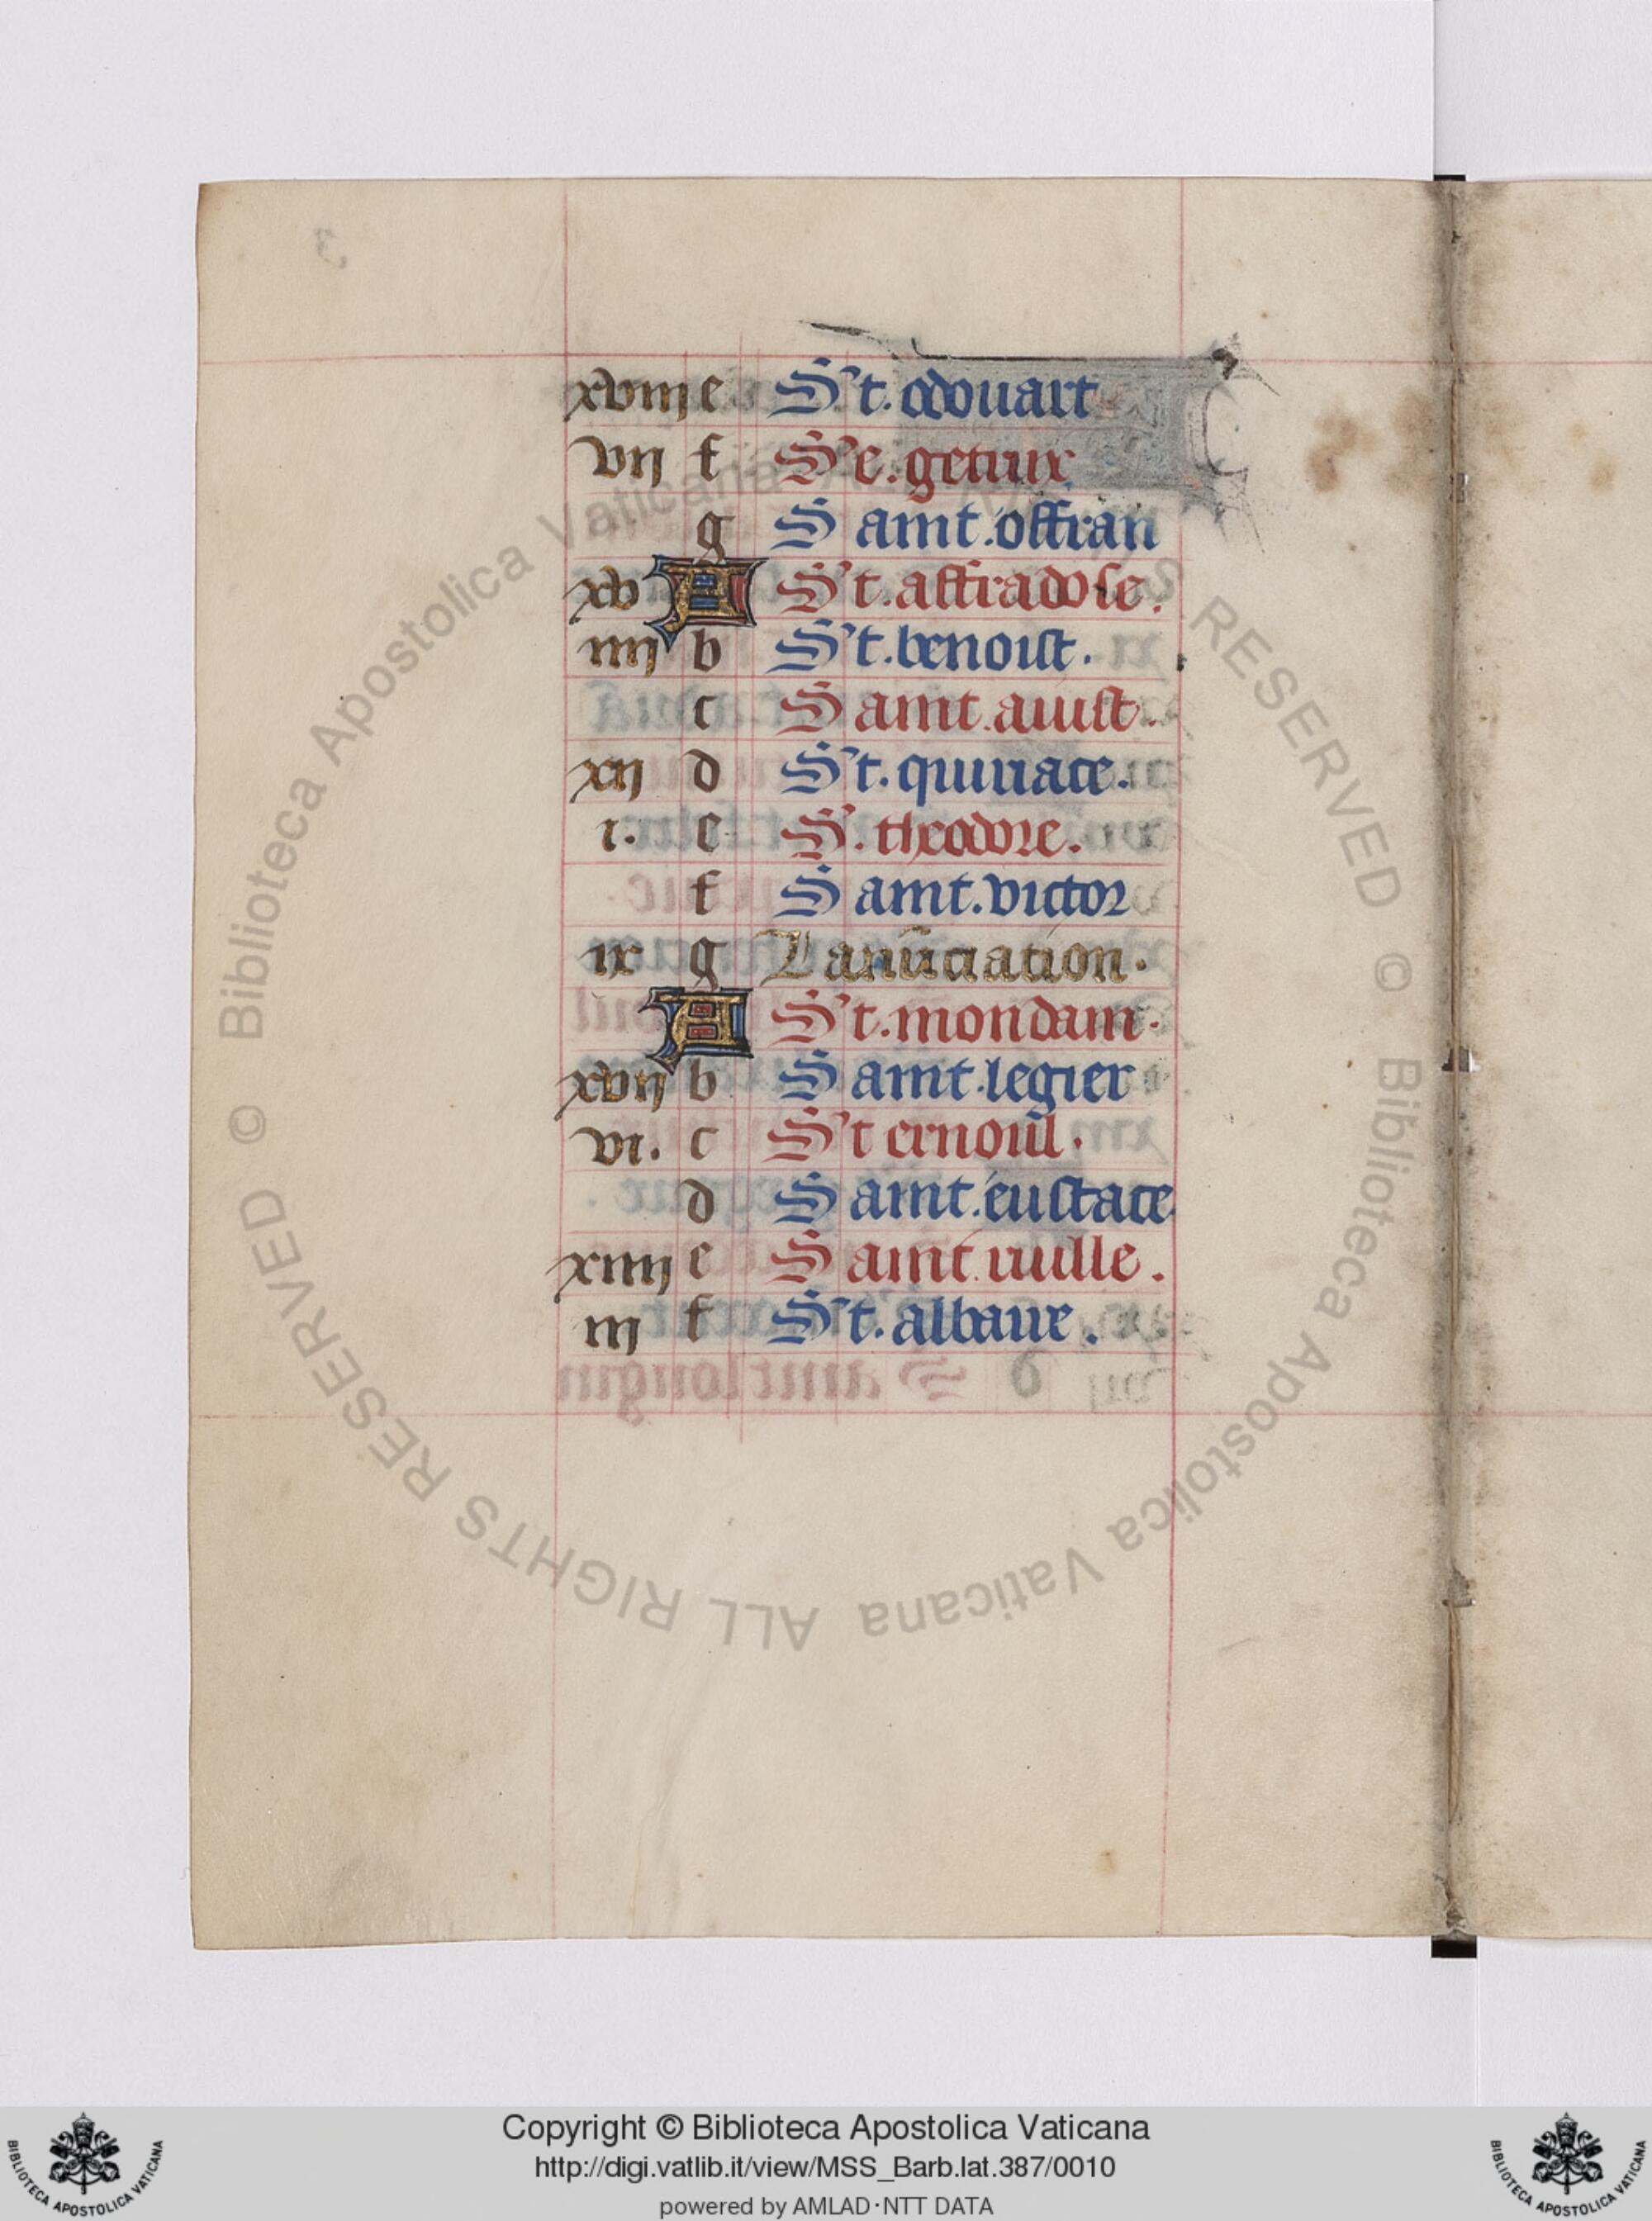 xviij e St. edouart
vij f Se. getrux
g Saint. offran
xv A St. affradose.
iiij b St. benoist.
c Saint. auist.
xij d St. quiriace.
i. e S. theodore.
f Saint. victor
ix g Lanũciation.
A St. mondain.
xvij b Saint. legier
vi. c St ernoul.
d Saint. eustace
xiiij e Saint. rulle.
iij f St. albaue.
© Biblioteca Apostolica Vaticana ALL RIGHTS RESERVED © Biblioteca Apostolica Vaticana ALL RIGHTS RESERVED
Copyright © Biblioteca Apostolica Vaticana
http://digi.vatlib.it/view/MSS_Barb.lat.387/0010
powered by AMLAD·NTT DATA
BIBLIOTECA APOSTOLICA VATICANA
BIBLIOTECA APOSTOLICA VATICANA